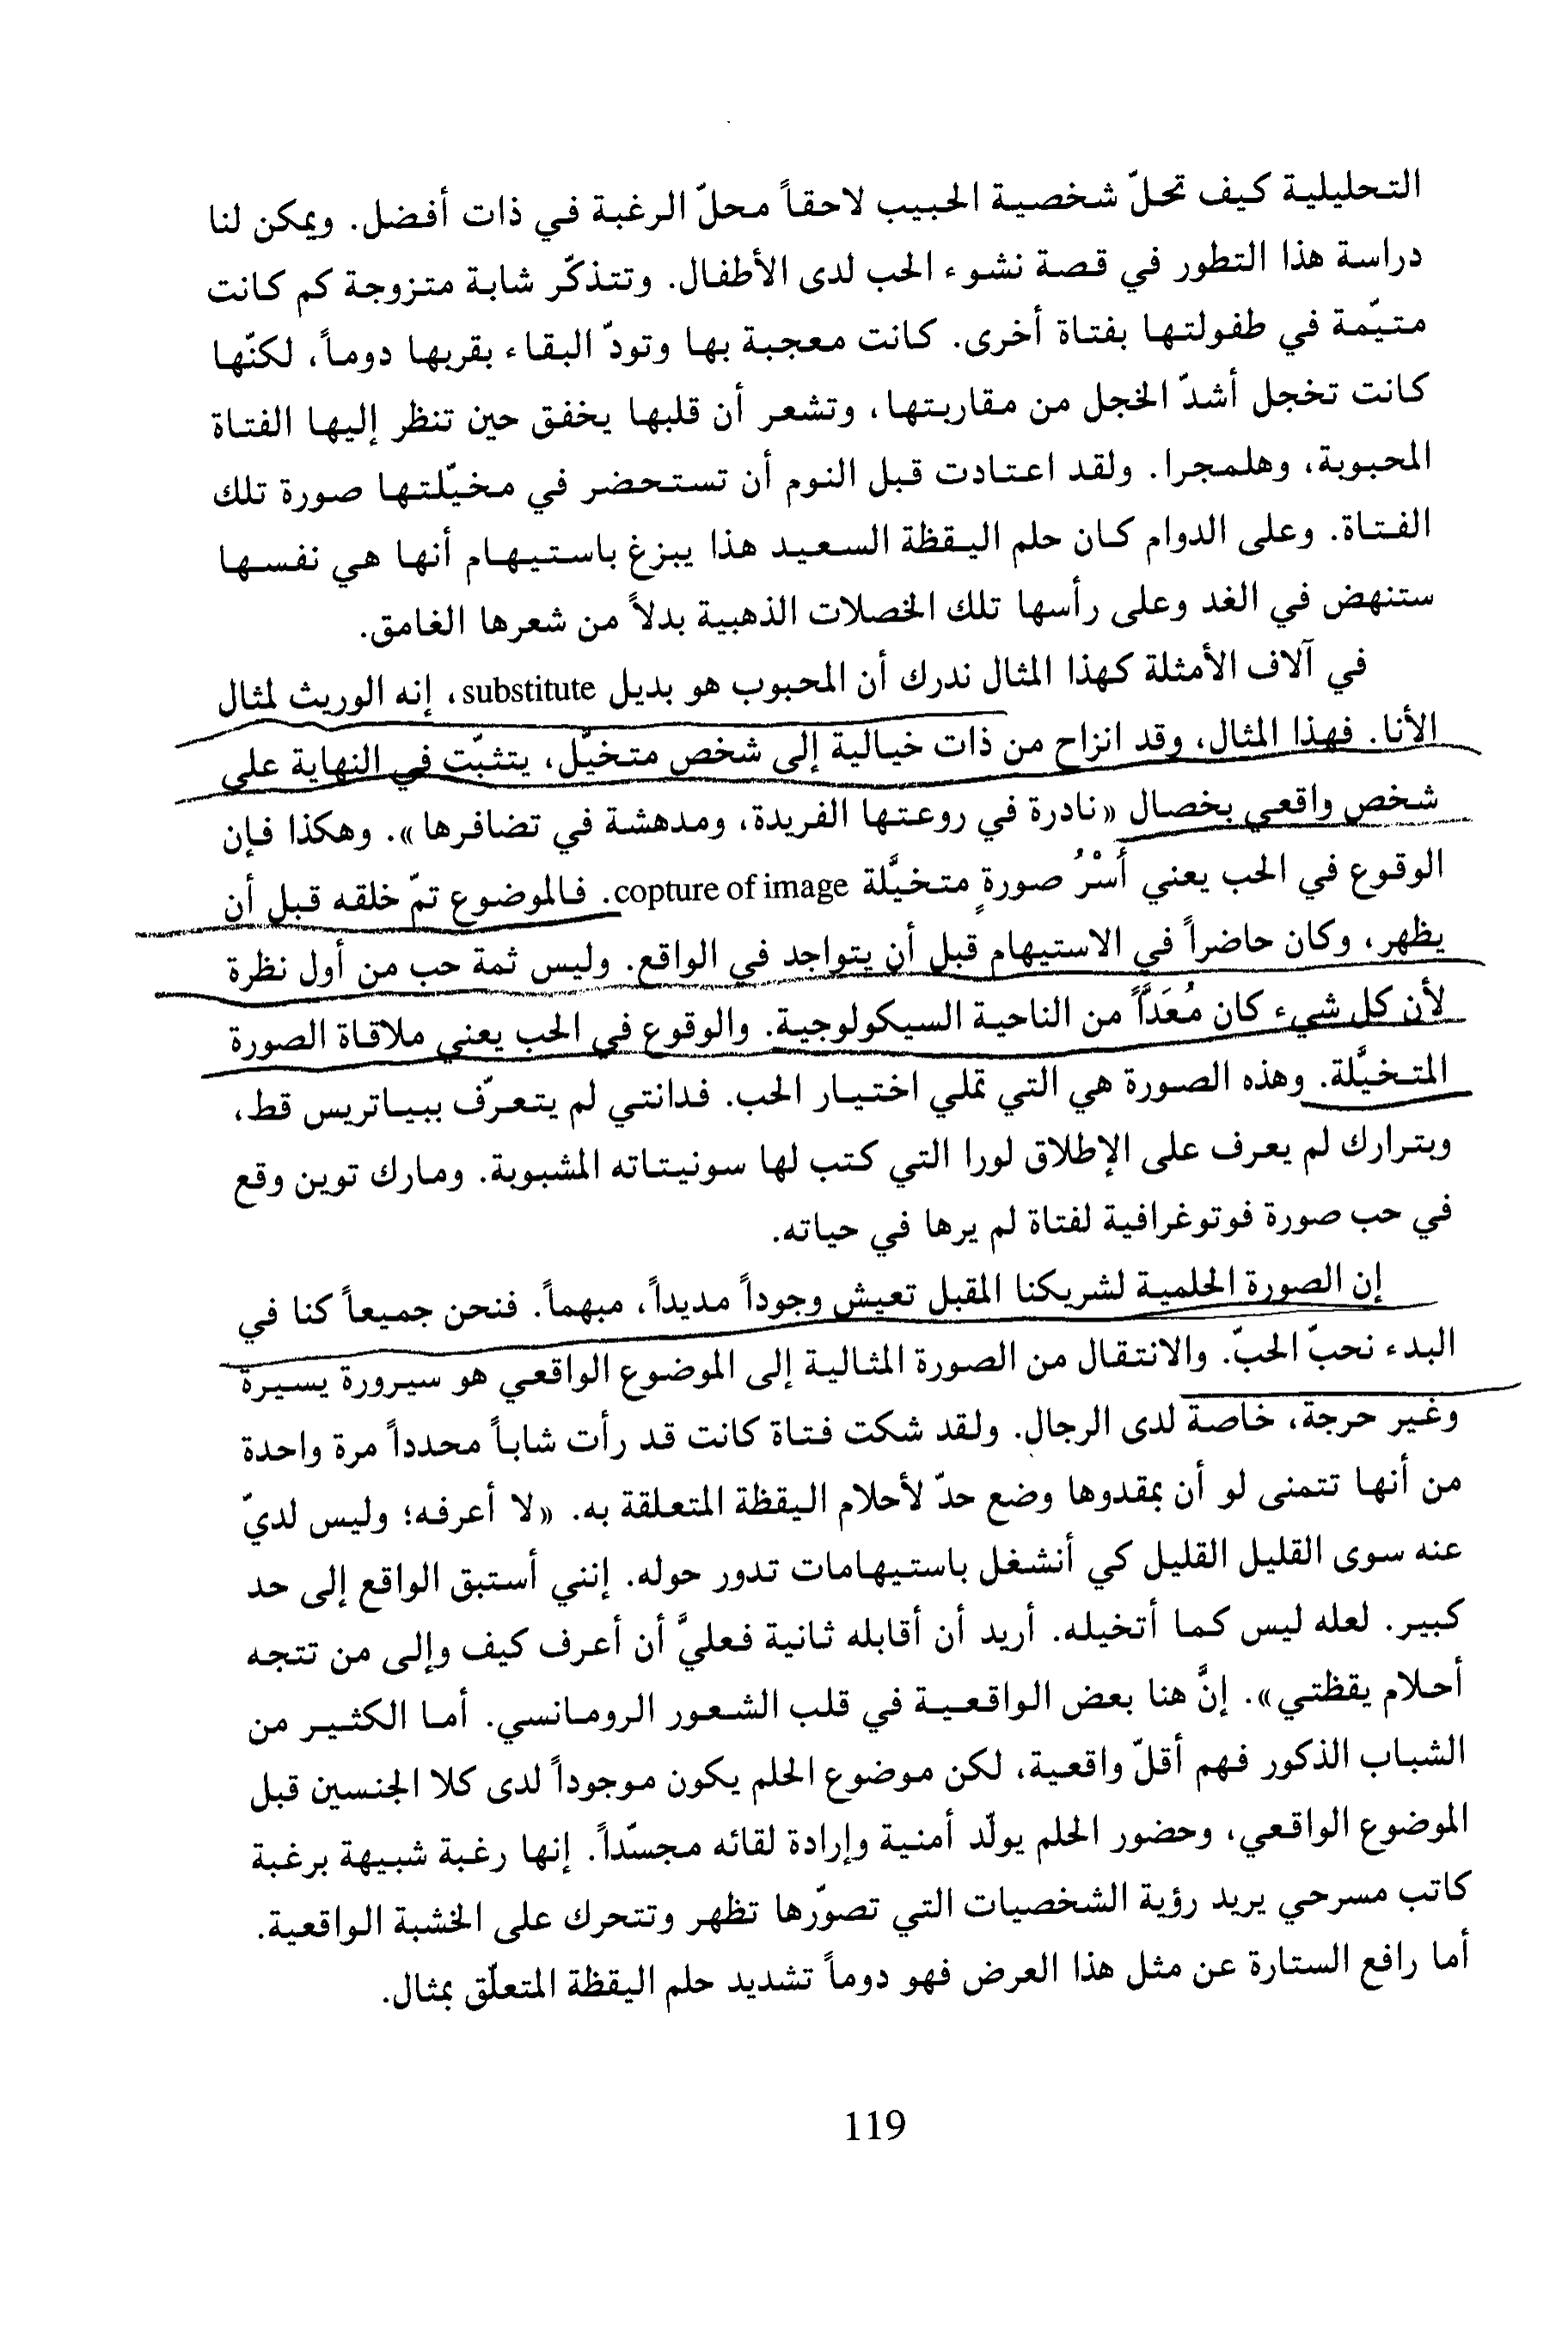 التحليلية كيف تحلّ شخصية الحبيب لاحقاً محلّ الرغبة في ذات أفضل. ويمكن لنا
دراسة هذا التطور في قصة نشوء الحب لدى الأطفال. وتتذكّر شابة متزوجة كم كانت
متيّمة في طفولتها بفتاة أخرى. كانت معجبة بها وتودّ البقاء بقربها دوماً، لكنّها
كانت تخجل أشدّ الخجل من مقاربتها، وتشعر أن قلبها يخفق حين تنظر إليها الفتاة
المحبوبة، وهلمجرا. ولقد اعتادت قبل النوم أن تستحضر في مخيّلتها صورة تلك
الفتاة. وعلى الدوام كان حلم اليقظة السعيد هذا يبزغ باستيهام أنها هي نفسها
ستنهض في الغد وعلى رأسها تلك الخصلات الذهبية بدلاً من شعرها الغامق.
في آلاف الأمثلة كهذا المثال ندرك أن المحبوب هو بديل substitute، إنه الوريث لمثال
الأنا. فهذا المثال، وقد انزاح من ذات خيالية إلى شخص متخيَّل، يتثبّت في النهاية على
شخص واقعي بخصال «نادرة في روعتها الفريدة، ومدهشة في تضافرها». وهكذا فإن
الوقوع في الحب يعني أَسْرُ صورةٍ متخيَّلة copture of image. فالموضوع تمّ خلقه قبل أن
يظهر، وكان حاضراً في الاستيهام قبل أن يتواجد في الواقع. وليس ثمة حب من أول نظرة
لأن كل شيء كان مُعَدَّاً من الناحية السيكولوجية. والوقوع في الحب يعني ملاقاة الصورة
المتخيَّلة. وهذه الصورة هي التي تملي اختيار الحب. فدانتي لم يتعرّف ببياتريس قط،
وبترارك لم يعرف على الإطلاق لورا التي كتب لها سونيتاته المشبوبة. ومارك توين وقع
في حب صورة فوتوغرافية لفتاة لم يرها في حياته.
إن الصورة الحلمية لشريكنا المقبل تعيش وجوداً مديداً، مبهماً. فنحن جميعاً كنا في
البدء نحبّ الحبّ. والانتقال من الصورة المثالية إلى الموضوع الواقعي هو سيرورة يسيرة
وغير حرجة، خاصة لدى الرجال. ولقد شكت فتاة كانت قد رأت شاباً محدداً مرة واحدة
من أنها تتمنى لو أن بمقدوها وضع حدّ لأحلام اليقظة المتعلقة به. «لا أعرفه؛ وليس لديّ
عنه سوى القليل القليل كي أنشغل باستيهامات تدور حوله. إنني أستبق الواقع إلى حد
كبير. لعله ليس كما أتخيله. أريد أن أقابله ثانية فعليَّ أن أعرف كيف وإلى من تتجه
أحلام يقظتي». إنَّ هنا بعض الواقعية في قلب الشعور الرومانسي. أما الكثير من
الشباب الذكور فهم أقلّ واقعية، لكن موضوع الحلم يكون موجوداً لدى كلا الجنسين قبل
الموضوع الواقعي، وحضور الحلم يولّد أمنية وإرادة لقائه مجسّداً. إنها رغبة شبيهة برغبة
كاتب مسرحي يريد رؤية الشخصيات التي تصوّرها تظهر وتتحرك على الخشبة الواقعية.
أما رافع الستارة عن مثل هذا العرض فهو دوماً تشديد حلم اليقظة المتعلّق بمثال.
119